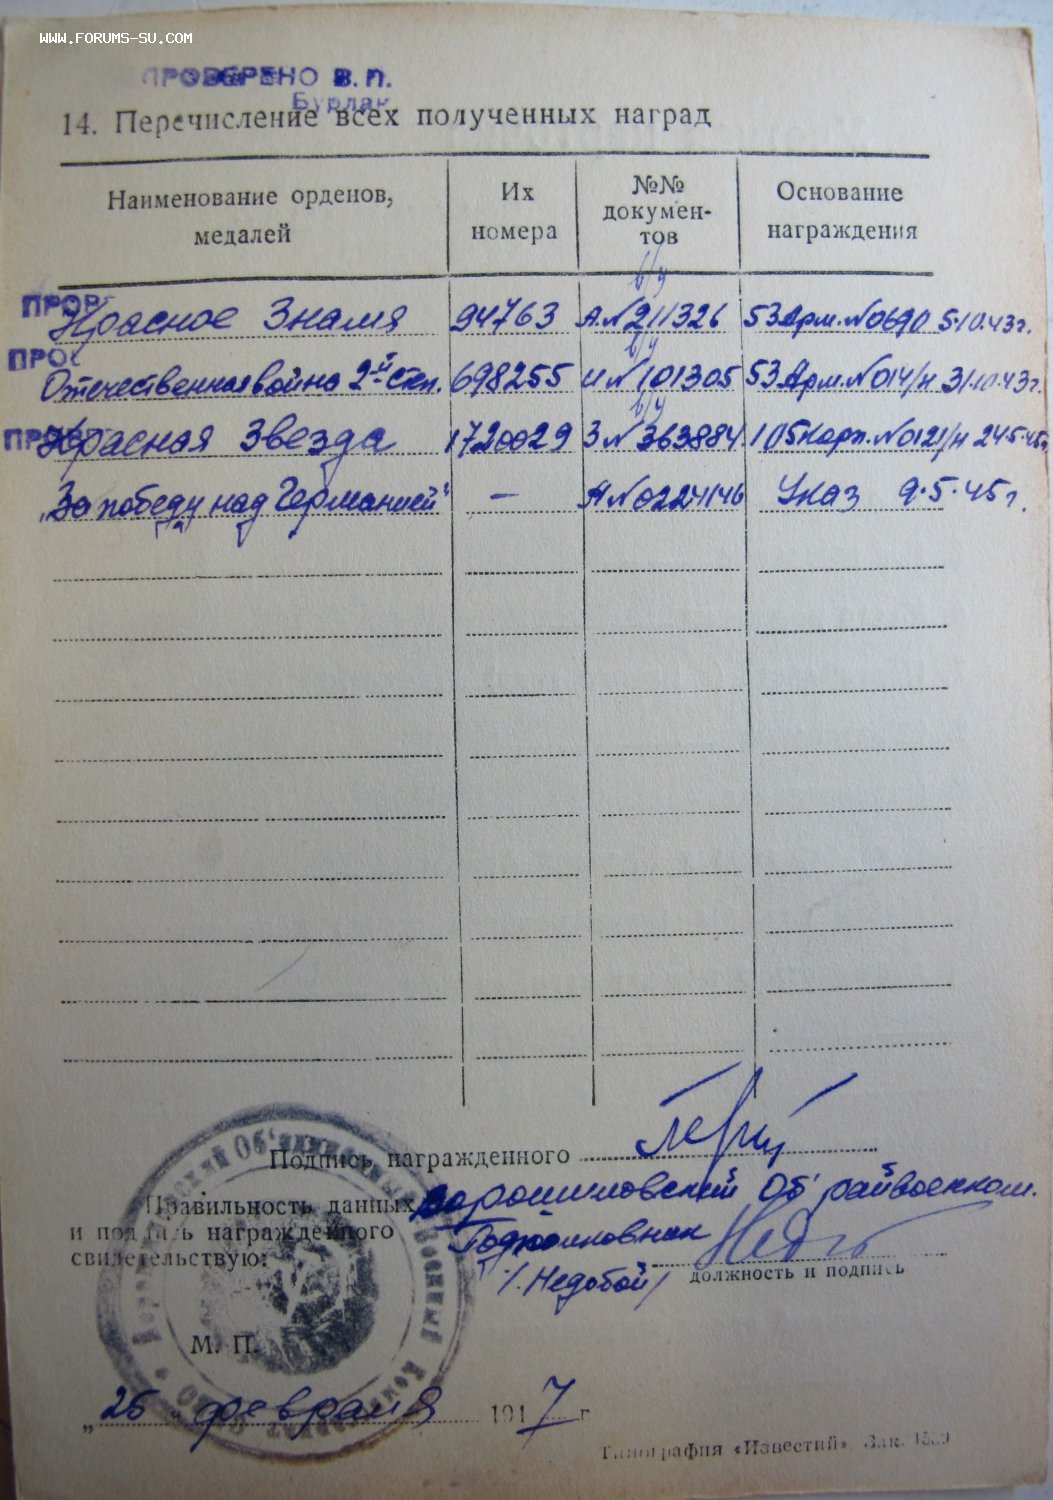 www.forums-su.com
ПРОВЕРЕНО В.П.
Бурлак
14. Перечисление всех полученных наград
Наименование орденов, медалей
Их номера
№№ докумен-тов
Основание награждения
б/у
ПРОВ
Красное Знамя 94763 А.№211326 53 Арм. №0690 5.10.43г.
ПРОВ
б/у
Отечественная война 2-й степ. 698255 И №101305 53 Арм. №014/н 31.10.43г.
б/у
Красная Звезда 1720029 З №363884 105 Корп. №0121/н 24.5.45г.
„За победу над Германией" — А №0224146 Указ 9.5.45г.
Подпись награжденного
Правильность данных
и подпись награжденного
свидетельствую:
Ворошиловский Об' райвоенком.
Подполковник
/Недобой/
должность и подпись
М. П.
„26" февраля 1947 г.
Типография «Известий». Зак. 1539